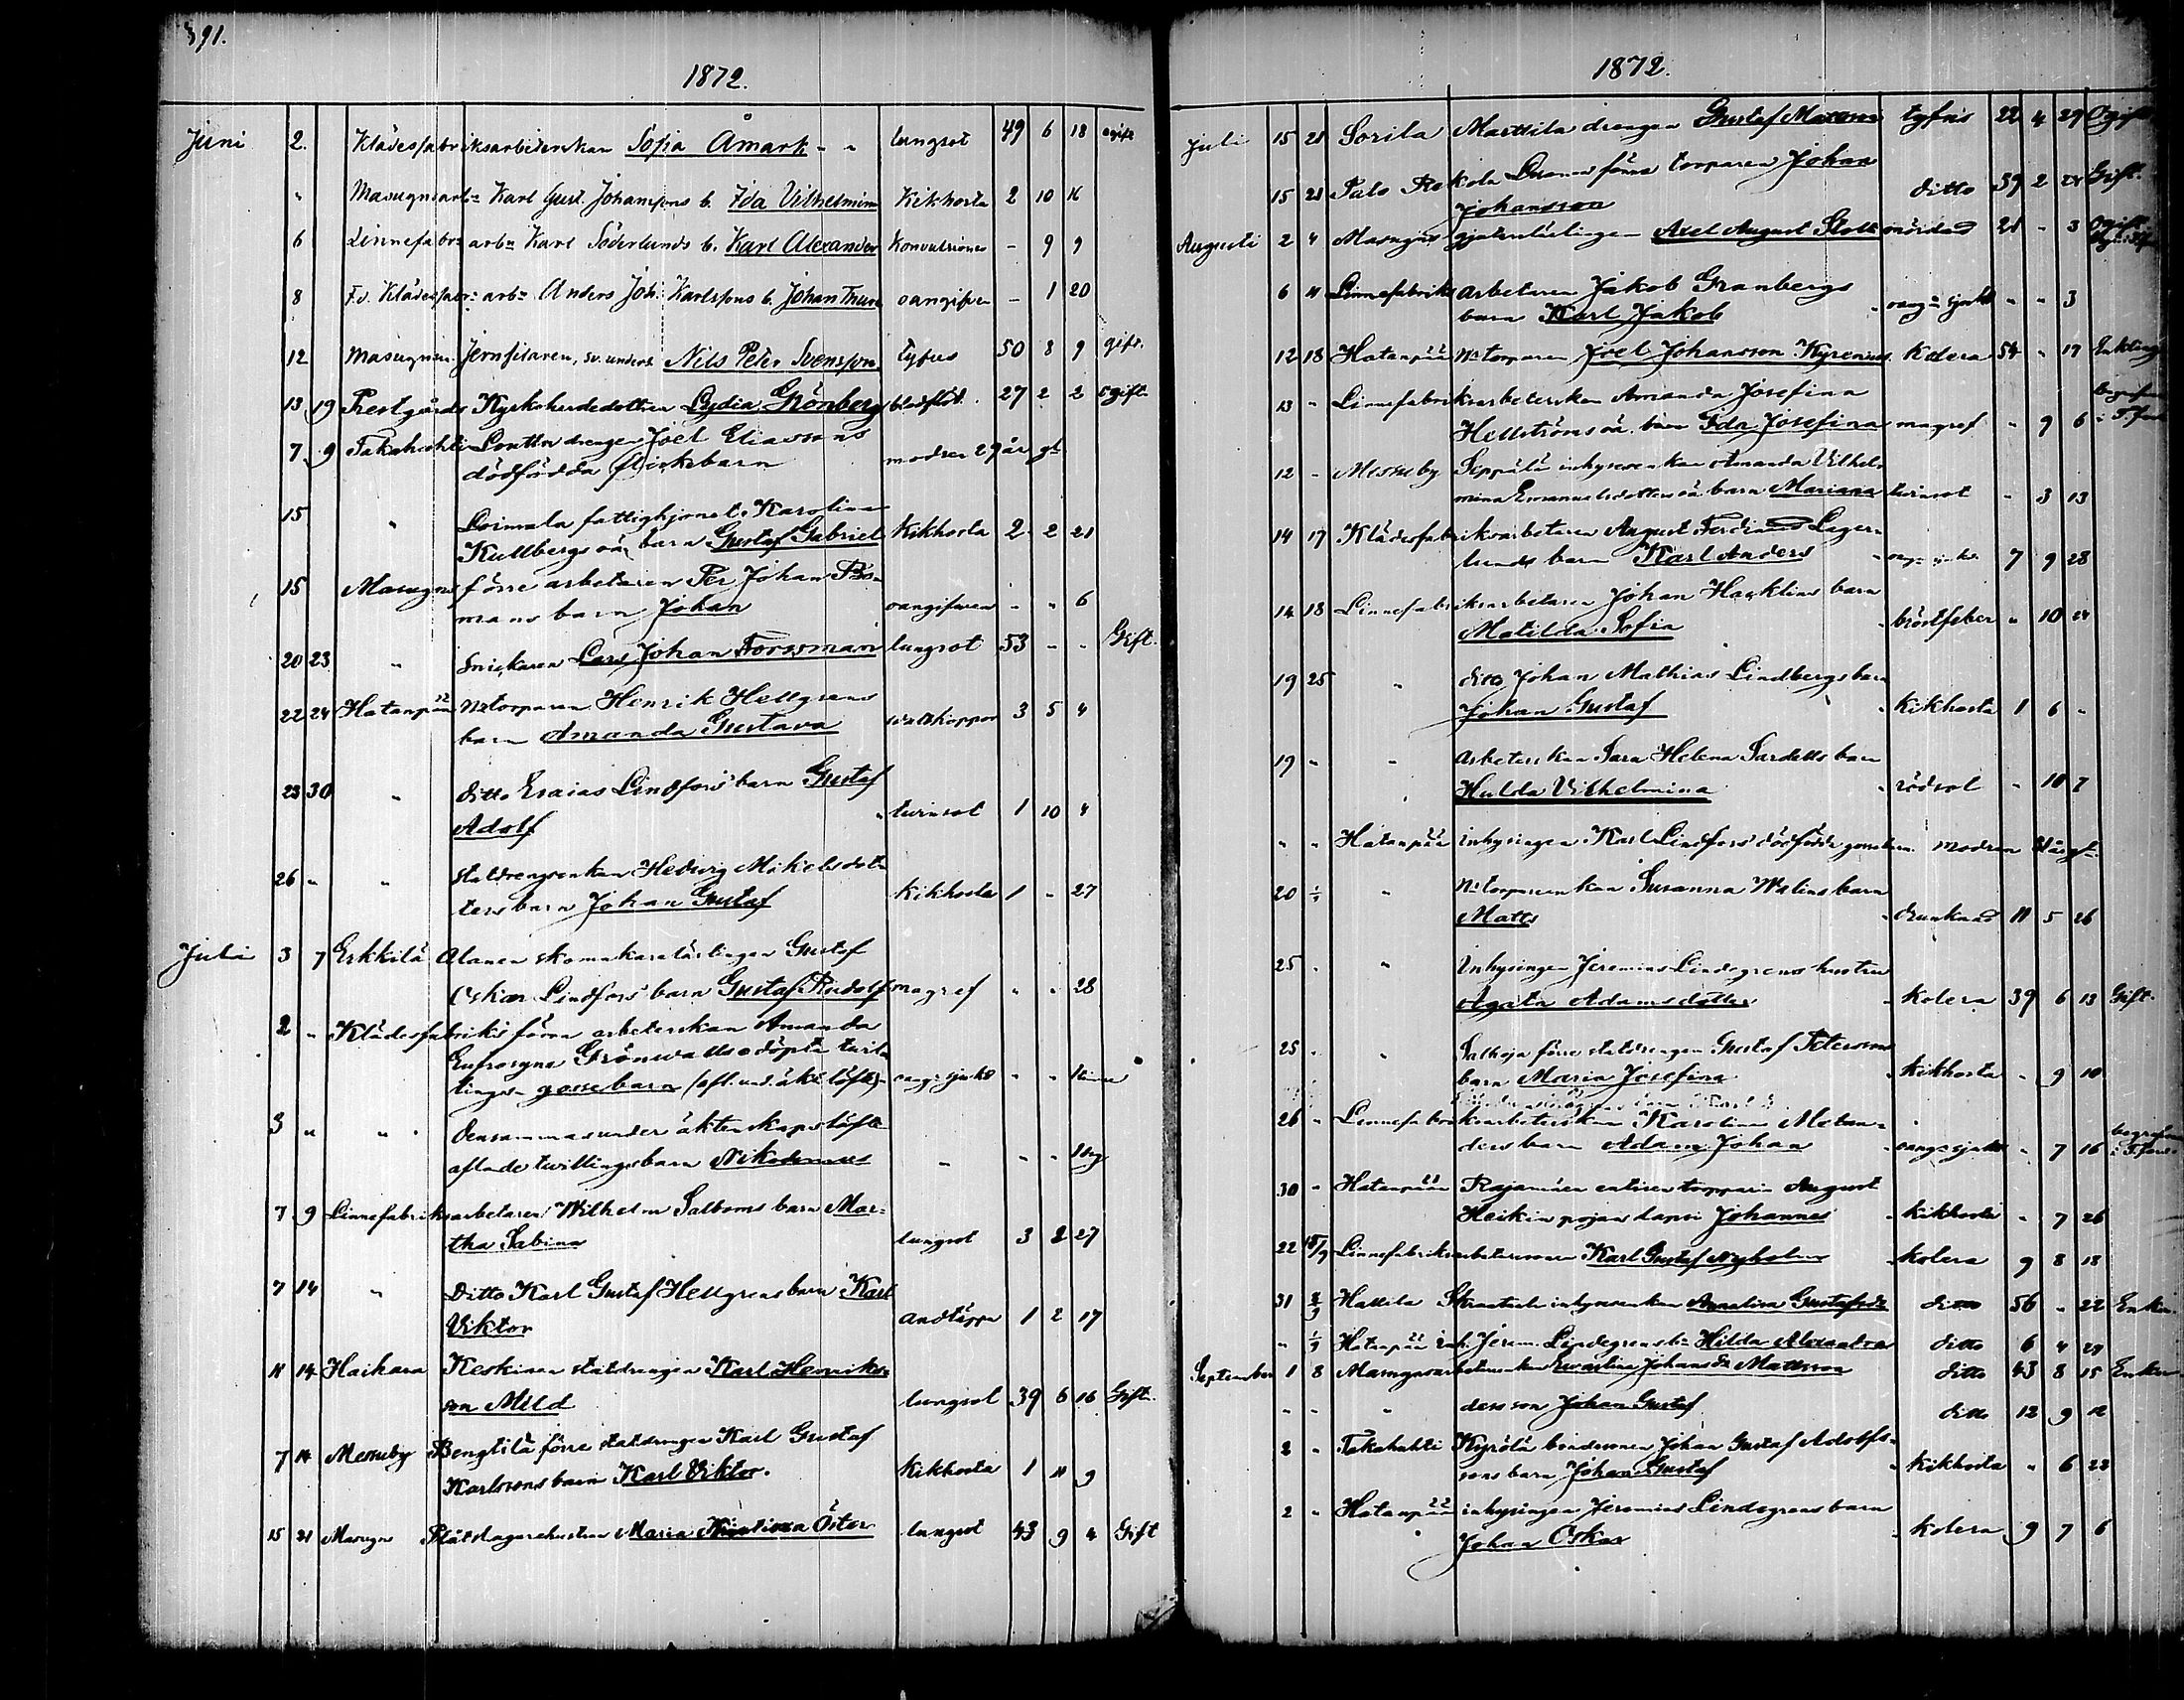 391.
1872.
Juni 2. Klädesfabriksarbeterskan Sofia Åmark - " lungsot 49 6 18 ogift
" Masugnsarb: Karl Gust. Johanssons b. Ida Vilhelmina Kikhosta 2 10 16
6 Linnefabr: arb: Karl Söderlunds b. Karl Alexander Konvulsioner - 9 9
8 F.d. Klädesfabr: arb: Anders Joh. Karlssons b. Johan Thure oangifven - 1 20
12 Masugnen Sv. unders. Nils Peter Svensson tyfus 50 8 9 gift.
13 19 Prestgårds Kyrkoherdedottren Lydia Grönberg blodflöd. 27 2 2 ogift
7 9 Takahuhti Lonttu drengen Joel Eliassons
dödfödda flickebarn modren 29 år gl.
15 " Loimala fattighjonet Karolina
Kullbergs oä. barn Gustaf Gabriel Kikhosta 2 2 21
15 Masugns förre arbetaren Per Johan
mans barn Johan oangifven - " 6
20 23 " Snickaren Lars Johan Forssman lungsot 53 - - Gift.
22 24 Hatanpää Nstorparen Henrik Hellgrens
barn Amanda Gustava wattkoppor 3 5 4
23 30 " ditto Esaias Lindfors' barn Gustaf
Adolf " twinsot 1 10 4
26 " " statdrengsenkan Hedvig Mikelsdot-
ters barn Johan Gustaf Kikhosta 1 - 27
Juli 3 7 Erkkilä Alanen skomakarelärlingen Gustaf
Oskar Lindfors' barn Gustaf Rudolf magref " " 28
2 " Klädesfabriks förra arbeterskan Amanda
Eufrosyne Grönwalls odöpta twil-
lingen gossebarn (afl. und. äkt. löfte) oang. sjukd " "
3 " " densammas under äktenskapslöfte
aflade twillingsbarn Nikodemus " " "
7 9 Linnefabriksarbetaren Wilhelm Salboms barn Mar-
tha Sabina lungsot 3 2 27
7 14 " Ditto Karl Gustaf Hellgrens barn Karl
Viktor andtäppa 1 2 17
11 14 Haihara Keskinen statdrengen Karl Henriks-
son Mild lungsot 39 6 16 Gift.
7 14 Messuby Bengtilä förre statdrengen Karl Gustaf
Karlssons barn Karl Viktor. Kikhosta 1 11 9
15 21 Masugns Plåtslagarehustrun Maria Kristina Öster lungsot 43 9 4 Gift
1872.
Juli 15 21 Sorila Marttila drengen Gustaf Matsson tyfus 22 4 29 Ogift
15 21 Palo Rokola förra torparen Johan
Johansson ditto 39 2 Gift.
Augusti 2 4 Masugns gjutarelärlingen Axel August Stolt mördad 21 - 3 Ogift
6 11 Linnefabriks arbetaren Jakob Granbergs
barn Karl Jakob " oang: sjukd " " 3
12 18 Hatanpää Nstorparen Joel Johansson Kyrenius Kolera 54 " 17 Enkling
13 " Linnefabriksarbeterskan Amanda Josefina begrafven
Hellströms oä. barn Ida Josefina magref " 9 6 i T.fors
12 - Messuby Seppälä inhyseenkan Amanda Vilhel-
mina Emanuelsdotters oä barn Mariana twinsot " 3 13
14 17 Klädesfabriksarbetaren August Ferdinand Lager-
lunds barn Karl Anders " oang: sjukd. 7 9 28
14 18 Linnefabriksarbetaren Johan Hacklins barn
Matilda Sofia " bröstfeber " 10 24
19 25 " ditto Johan Mathias Lindbergs barn
Johan Gustaf " Kikhosta 1 6 -
19 " " Arbeterskan Sara Helena Sardells barn
Hulda Vilhelmina " rödsot " 10 7
" " Hatanpää inhysingen Karl Lindfors' dödfödda gossebarn. modren 21 år gl.
20 " Nstorpareenkan Susanna Walins barn
Matts " drunknad 11 5 26
25 " " Inhysingen Jeremias Lindegrens hustru
Agata Adamsdotter " Kolera 39 6 13 Gift.
25 " " Salhoja förre statdrengen Gustaf Petersons
barn Maria Josefina " Kikhosta " 9 10
26 " Linnefabriksarbeterskan Karolina Melan-
ders barn Adam Johan " oang: sjukd " 7 16 begrafven i T.fors.
30 " Hatanpää Rajamäen entisen torpparin August
Heikin pojan lapsi Johannes " Kikhosta " 7 26
22 15/9 Linnefabriksarbetaresonen Karl Gustaf Nyholm kolera 9 8 18
31 8/9 Hallila inhyseenkan Annalisa Gustafsdr ditto 56 " 22 Enka.
" Hatanpää inh. Jerem. Lindegrens b: Hilda Alexandra ditto 6 4 29
September 1 8 Masugnsarbeterskan Evalina Johansdr Mattsson ditto 43 8 15 Enka.
" " " dess son Johan Gustaf ditto 12 9 12
2 " Takahuhti Kyrölä bondesonen Johan Gustaf Adolfs-
sons barn Johan Gustaf " Kikhosta " 6 22
2 " Hatanpää inhysingen Jeremias Lindegrens barn
Johan Oskar " Kolera 9 7 6